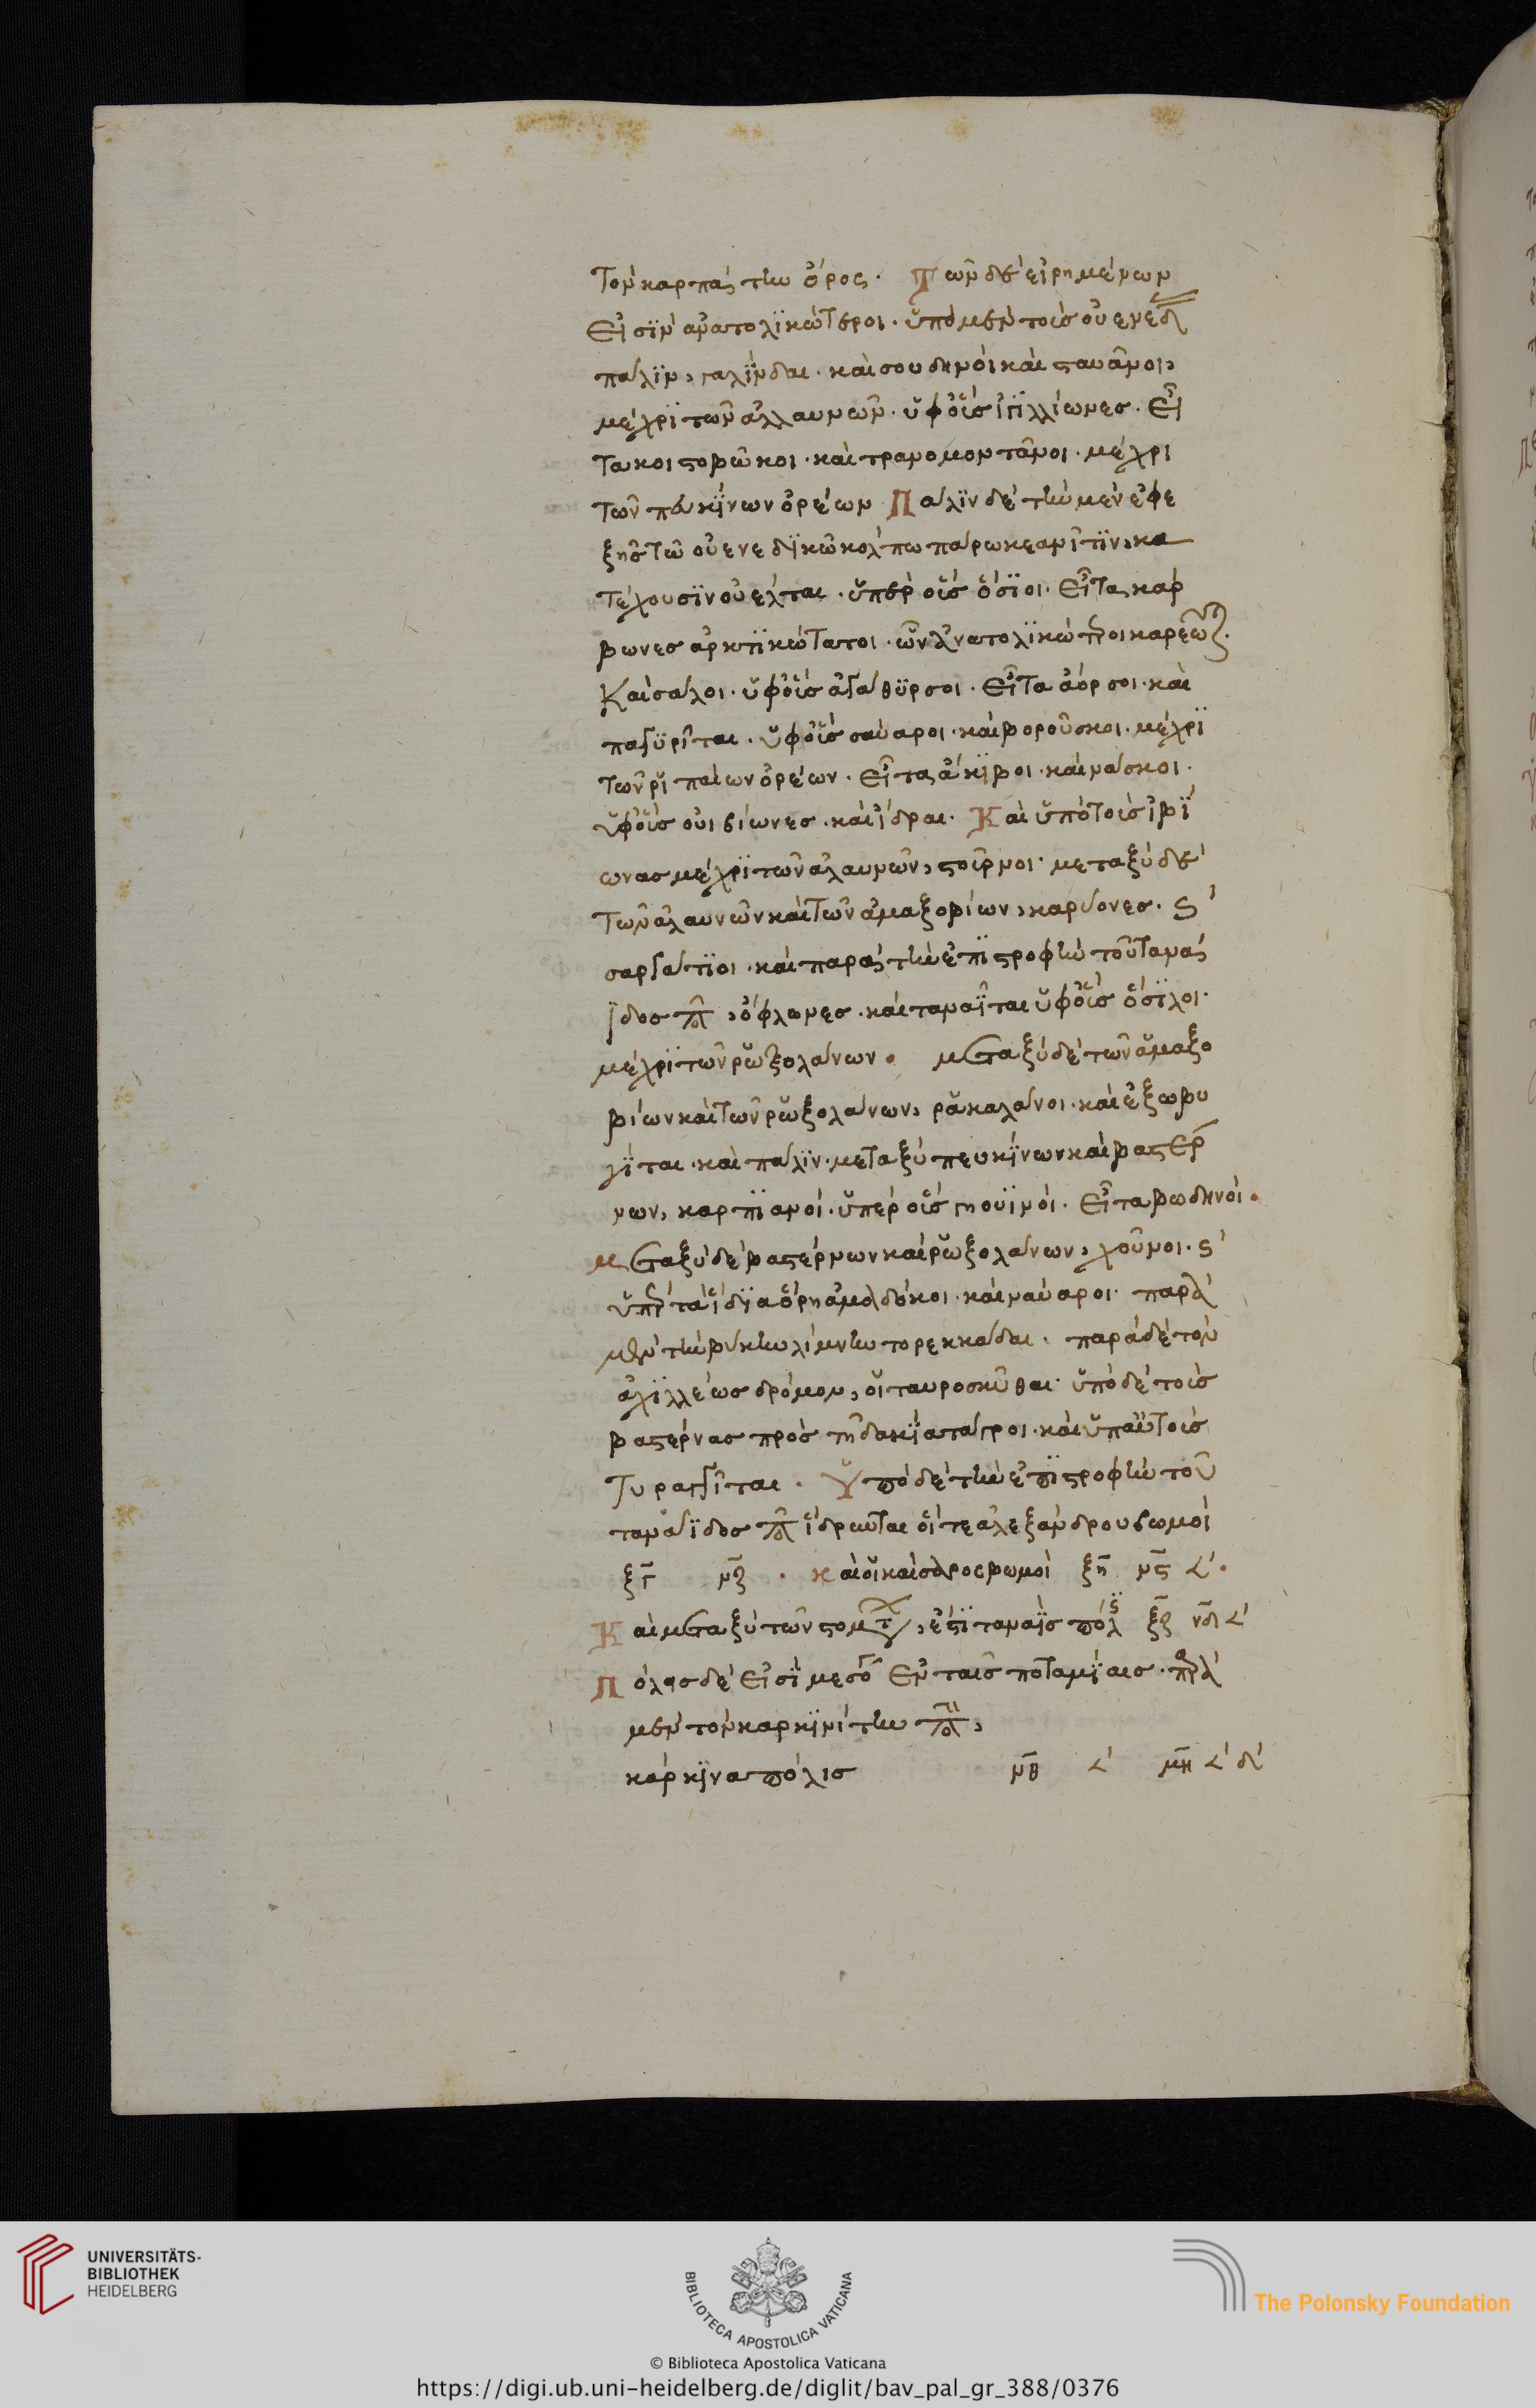 τὸν καρπάτην ὄρος. Τῶν δὲ εἰρημένων
εἰσὶν ἀνατολικώτεροι. ὑπὸ μὲν τοὺς οὐενέδ
πάλιν, γαλίνδαι. καὶ σουδηνοὶ καὶ σταυᾶνοι,
μέχρι τῶν ἀλλαυνῶν. ὑφ οὓς ἰπιλλίωνες. εἶ
τα κοιστοβῶκοι. καὶ τρανομοντᾶνοι. μέχρι
τῶν πευκίνων ὀρέων Πάλιν δὲ τὴν μὲν ἐφε
ξῆς τῶ οὐενεδικῶ κόλπω παρωκεανῖτιν, κα
τέχουσιν οὐέλται. ὑπὲρ οὓς ὅσιοι. εἶτα καρ
βωνες ἀρκτικώτατοι. ὧν ἀνατολικώτεροι καρεῶτ.
Καὶ σάλοι. ὑφ οὓς ἀγάθυρσοι. εἶτα ἄορσοι. καὶ
παγυρῖται. ὑφ οὓς σαύαροι. καὶ βοροῦσκοι. μέχρι
τῶν ῥιπαίων ὀρέων. εἶτα ἄκιβοι. καὶ νάσκοι.
ὑφ οὓς οὐιβίωνες. καὶ ἴδραι. Καὶ ὑπὸ τοὺς ἰβί
ωνας μέχρι τῶν ἀλαυνῶν, στοῦρνοι. μεταξὺ δὲ
τῶν ἀλαυνῶν καὶ τῶν ἀμαξοβίων, καρίονες. ϛ
σαργάτιοι. καὶ παρὰ τὴν ἐπιστροφὴν τοῦ τανάϊ
ιδος ποτ, ὄφλωνες. καὶ ταναῖται ὑφ οὓς ὅσιλοι.
μέχρι τῶν ῥωξολάνων. μεταξὺ δὲ τῶν ἁμαξο
βίων καὶ τῶν ῥωξολάνων, ῥακαλάνοι. καὶ ἐξωβυ
γῖται. καὶ πάλιν. μεταξὺ πευκίνων καὶ βαστερ
νων, καρπιανοί. ὑπὲρ οὓς γηουινοί. εἶτα βωδηνοί.
μεταξὺ δὲ βαστέρνων καὶ ῥωξολάνων, χοῦνοι. ϛ
ὑπὲρ τὰ ἴδια ὄρη ἀμαδόκοι. καὶ ναύαροι. παρὰ
μὲν τὴν βύκην λίμνην τορεκκάδαι. παρὰ δὲ τὸν
ἀχιλλέως δρόμον, οἱ ταυροσκύθαι. ὑπὸ δὲ τοὺς
βαστέρνας πρὸς τῆ δακία τάγροι. καὶ ὑπ αὐτοὺς
τυραγγῖται. Ὑπὸ δὲ τὴν ἐπιστροφὴν τοῦ
ταναϊδος ποτ ἵδρυνται οἵ τε ἀλεξάνδρου βωμοὶ
ξγ νζ. καὶ οἱ καίσαρος βωμοὶ ξη νϛ 𐅵.
Καὶ μεταξὺ τῶν στομάτ, ἐστὶ ταναῒς πόλις ξζ νδ 𐅵
Πόλεις δέ εἰσι μεσόγ ἐν ταῖς ποταμίαις. παρὰ
μὲν τὸν καρκινίτην ποτ,
κάρκινα πόλις νθ 𐅵 μη 𐅵 δ
UNIVERSITÄTS-
BIBLIOTHEK
HEIDELBERG
BIBLIOTECA APOSTOLICA VATICANA
The Polonsky Foundation
© Biblioteca Apostolica Vaticana
https://digi.ub.uni-heidelberg.de/diglit/bav_pal_gr_388/0376